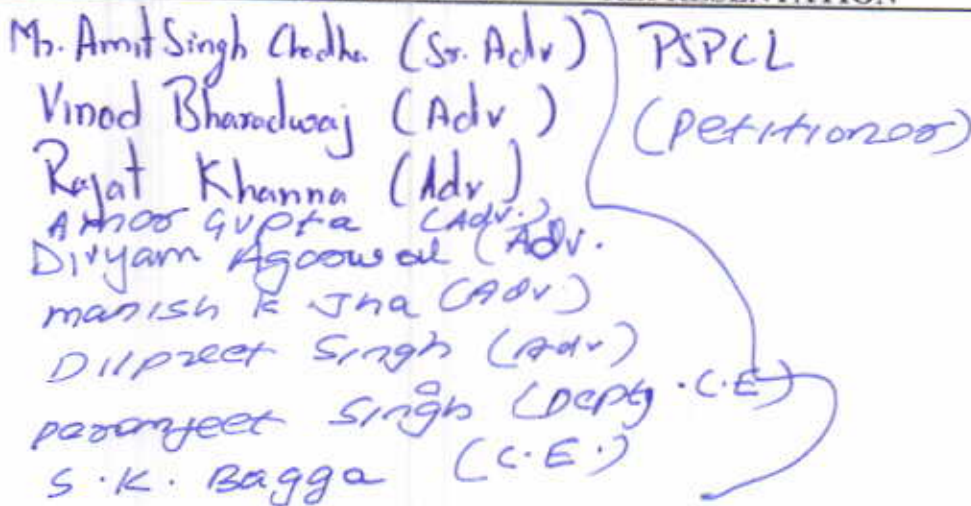 Mr. Amit Singh Chadha (Sr. Adv) PSPCL
Vinod Bharadwaj (Adv) (Petitioner)
Rajat Khanna (Adv)
Amar Gupta (Adv.)
Divyam Agarwal (Adv.
manish K Jha (Adv)
Dilpreet Singh (Adv)
paramjeet Singh (Depty. C.E)
S.K. Bagga (C.E.)